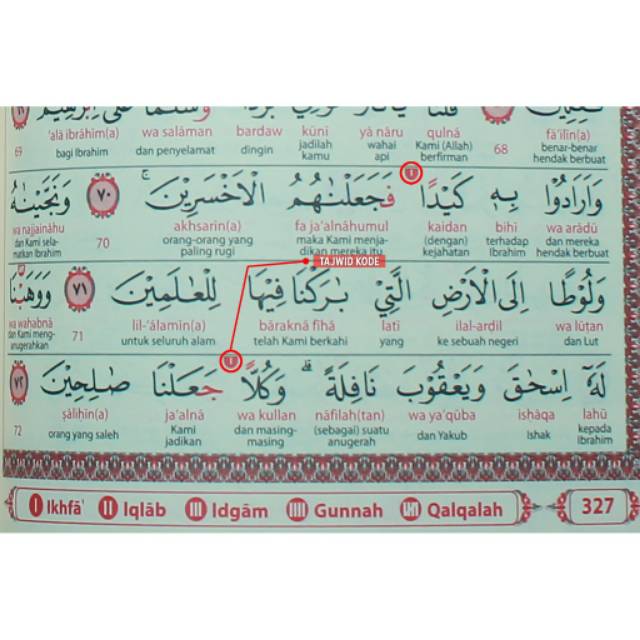 'alā ibrāhīm(a) wa salāman bardaw kūnī yā nāru qulnā fā'ilīn(a)
69 bagi Ibrahim dan penyelamat dingin jadilah kamu wahai api Kami (Allah) berfirman 68 benar-benar hendak berbuat
وَاَرَادُوْا بِهٖ كَيْدًا فَجَعَلْنٰهُمُ الْاَخْسَرِيْنَ ۚ ٧٠ وَنَجَّيْنٰهُ
wa najjaināhu akhsarīn(a) fa ja'alnāhumul kaidan bihī wa arādū
dan Kami selamatkan Ibrahim 70 orang-orang yang paling rugi maka Kami menjadikan mereka itu (dengan) kejahatan terhadap Ibrahim dan mereka hendak berbuat
TAJWID KODE
وَلُوْطًا اِلَى الْاَرْضِ الَّتِيْ بٰرَكْنَا فِيْهَا لِلْعٰلَمِيْنَ ٧١ وَوَهَبْنَا
wa wahabnā lil-'ālamīn(a) bāraknā fīhā latī ilal-arḍil wa lūṭan
dan Kami menganugerahkan 71 untuk seluruh alam telah Kami berkahi yang ke sebuah negeri dan Lut
لَهٗٓ اِسْحٰقَ وَيَعْقُوْبَ نَافِلَةً ۗ وَكُلًّا جَعَلْنَا صٰلِحِيْنَ ٧٢
ṣāliḥīn(a) ja'alnā wa kullan nāfilah(tan) wa ya'qūba isḥāqa lahū
72 orang yang saleh Kami jadikan dan masing-masing (sebagai) suatu anugerah dan Yakub Ishak kepada Ibrahim
I Ikhfā' II Iqlāb III Idgām IIII Gunnah Qalqalah 327